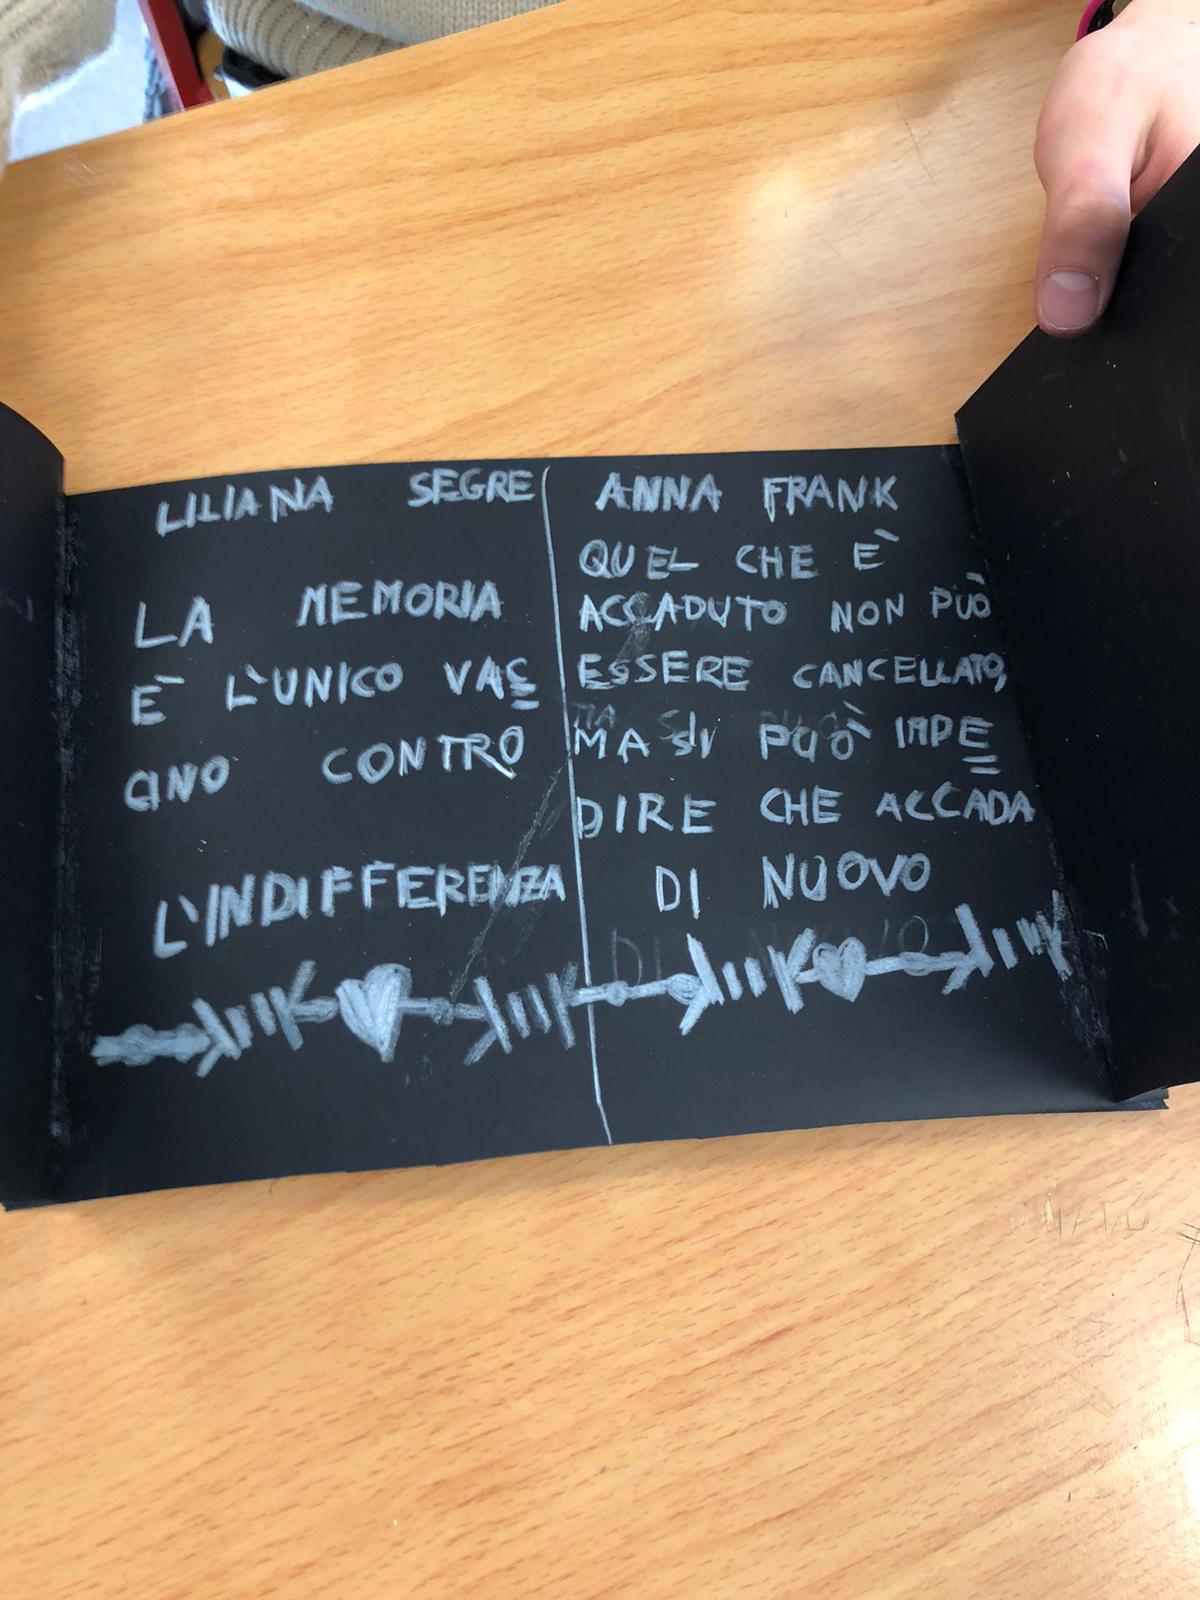 LILIANA SEGRE
LA MEMORIA
E` L'UNICO VAC
CINO CONTRO
L'INDIFFERENZA
ANNA FRANK
QUEL CHE E`
ACCADUTO NON PUÒ
ESSERE CANCELLATO,
MA SI PUÒ IMPE
DIRE CHE ACCADA
DI NUOVO
DI NUOVO